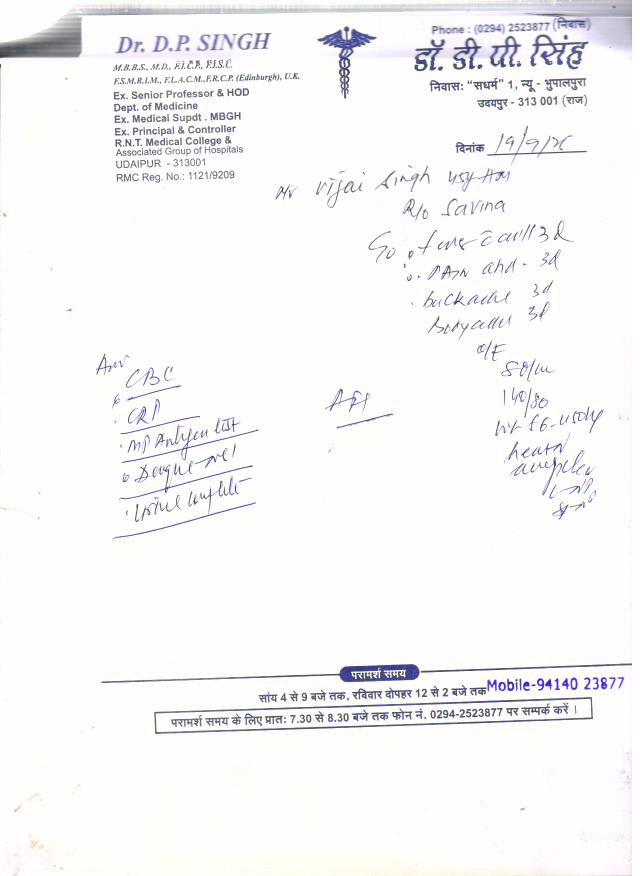 Dr. D.P. SINGH
M.B.B.S., M.D., F.I.C.P., F.I.S.C.
F.S.M.R.I.M., F.L.A.C.M.,F.R.C.P. (Edinburgh), U.K.
Ex. Senior Professor & HOD
Dept. of Medicine
Ex. Medical Supdt . MBGH
Ex. Principal & Controller
R.N.T. Medical College &
Associated Group of Hospitals
UDAIPUR - 313001
RMC Reg. No.: 1121/9209
Phone : (0294) 2523877 (निवास)
डॉ. डी. पी. सिंह
निवास: “सधर्म” 1, न्यू - भुपालपुरा
उदयपुर - 313 001 (राज)
दिनांक 19/9/
Mr Vijai Singh
R/o Savina
3d
3d
backache 3d
3d
O/E
80/m
140/80
CBC
CRP
MP Antigen
Dengue
परामर्श समय
सांय 4 से 9 बजे तक, रविवार दोपहर 12 से 2 बजे तक Mobile-94140 23877
परामर्श समय के लिए प्रात: 7.30 से 8.30 बजे तक फोन नं. 0294-2523877 पर सम्पर्क करें ।